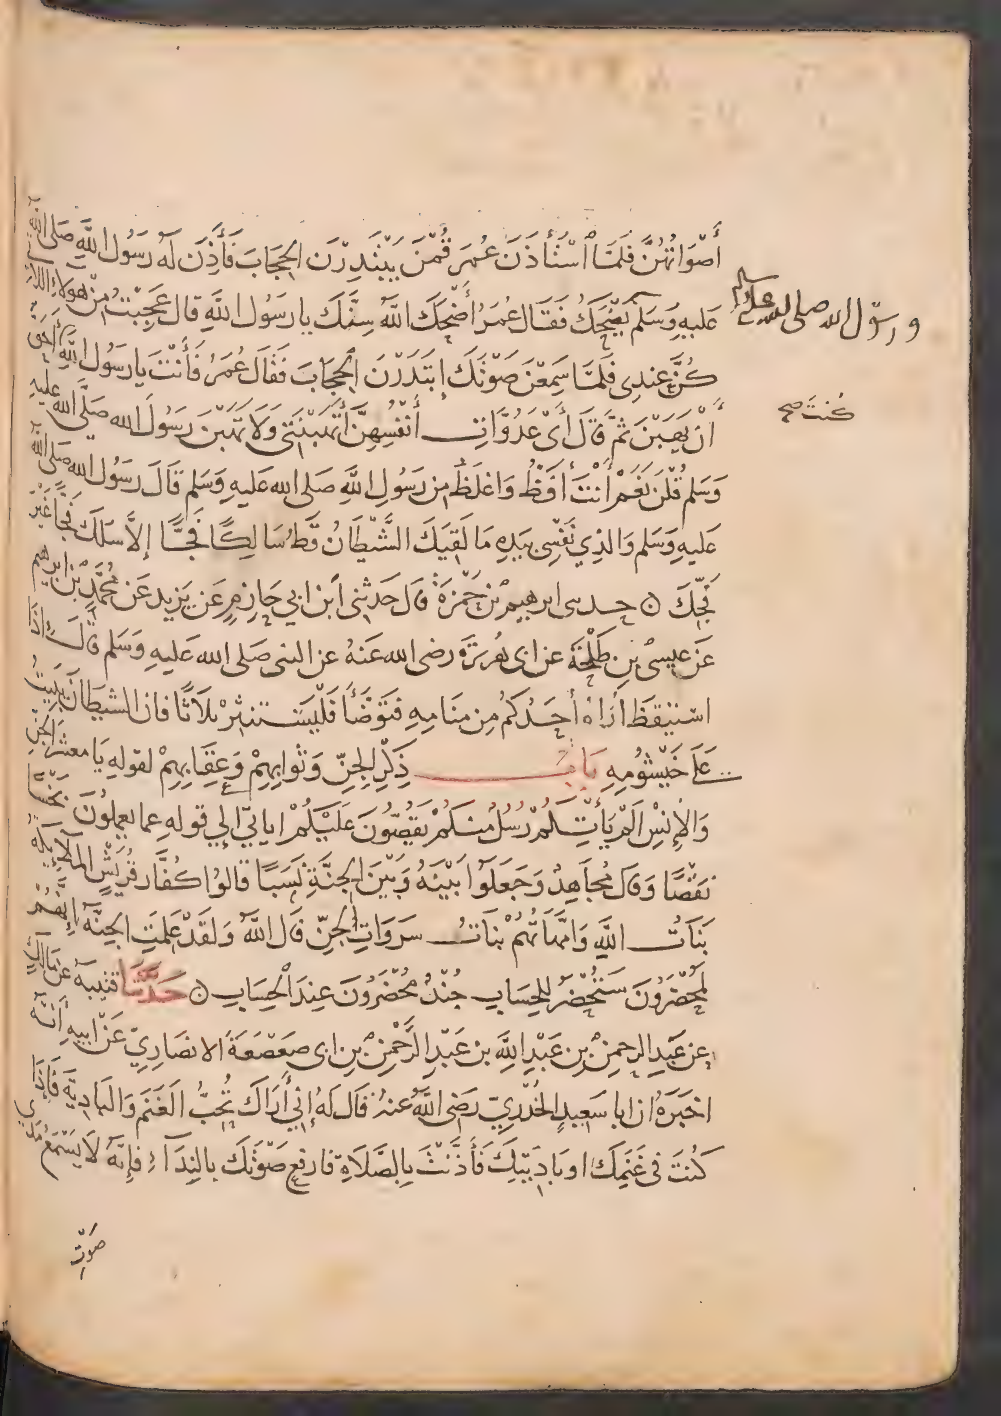 أَصْوَاتُهُنَّ فَلَمَّا اسْتَأْذَنَ عُمَرُ قُمْنَ يَبْتَدِرْنَ الْحِجَابَ فَأَذِنَ لَهُ رَسُولُ اللهِ صَلَى الله
عليهِ وَسَلم يَضْحَكُ فَقَالَ عُمَرُ أَضْحَكَ اللهُ سِنَّكَ يا رَسُولَ اللهِ قالَ عَجِبْتُ مِنْ هَولاءِ اللاتى
ورسول الله صلى الله عليه وسلم
كُنَّ عِندِى فَلَمَّا سَمِعْنَ صَوْتَكَ ابتَدَرْنَ الحِجَابَ فَقَالَ عُمَرُ فَأَنْتَ يا رَسُولَ اللهِ أَحَقُّ
كُنتَ صح
أَنْ يَهَبْنَ ثمَّ قَالَ أَىْ عَدُوَّاتِ أَنْفُسِهِنَّ أَتَهَبْنَنِى وَلَا تَهَبْنَ رَسُولَ الله صَلَّى الله عليهِ
وَسَلم قُلْنَ نَعَمْ أَنْتَ أَفَظُّ وَاغلَظُ مِن رَسُولِ اللهِ صَلى الله عَليهِ وَسَلم قَالَ رَسُولُ الله صَلى الله
عَليهِ وَسَلم وَالذِي نَفْسِى بيَدِهِ مَا لَقِيَكَ الشَّيْطَانُ قَطُّ سَالِكًا فَجًّا إلَّا سَلَكَ فَجًّا غَيْرَ
فَجِّكَ ۞ حدثنى ابرهيمُ بْن حَمْزَةَ قال حَدثنى ابْن ابي حَازِمٍ عَن يَزيد عَن مُحمَّدِ بْن ابرهيم
عَن عِيسى بنِ طَلْحَةَ عن ابى هُريرَة رضى الله عَنهُ عن النبى صَلى الله عَليهِ وَسَلم قَالَ إذَا
اسْتَيْقَظَ أُرَاهُ أَحَدُكُم مِن مَنَامِهِ فَتَوَضَّأَ فَلْيَسْتَنثِرْ ثَلَاثًا فَان الشيطَانَ يَبِيتُ
عَلَى خَيْشُومِهِ بَاب ذِكْرِ الجِنِّ وَثَوابِهِمْ وَعِقَابِهِمْ لقولهِ يَا معشرَ الجِنِّ
وَالإنْسِ أَلَمْ يَأْتِكُمْ رُسُلٌ مِنكُمْ يَقُصُّونَ عَلَيْكُمْ اياتى الى قولهِ عما يعملُونَ بَخْسًا
نَقْصًا وَقَالَ مُجَاهِدٌ وَجَعَلُوا بَيْنَهُ وَبَيْنَ الجِنَّةِ نَسَبًا قالوا كُفَّارُ قُرَيْشٍ المَلَائِكَة
بَنَاتُ اللهِ وَامَّهَاتُهُمْ بَنَاتُ سَرَوَاتِ الجِنِّ قَالَ اللهُ وَلَقَدْ عَلِمَتِ الجِنَّة إِنَّهُمْ
لَمُحْضَرُونَ سَتُحْضَرُ لِلحِسَابِ جُنْدٌ مُحْضَرُونَ عِندَ الْحِسَابِ ۞ حَدَّثَنَا قتيبة عَن مَالِكٍ
عن عَبدِ الرحمنِ بنِ عَبْدِ اللهِ بن عَبْدِ الرَّحْمنِ بن ابى صَعْصَعَةَ الانصَارِيِّ عَن ابيهِ أَنَّهُ
اخبَرَهُ ان ابا سَعِيدٍ الخُدْرِيَّ رَضى اللهُ عَنهُ قَال لَهُ إِنِّي أَرَاكَ تُحِبُّ الغَنَمَ وَالبَادِيَةَ فَإِذَا
كُنتَ فى غَنَمِكَ او بَادِيَتِكَ فَأَذَّنْتَ بِالصَّلَاةِ فارفع صَوْتَكَ بالنِدَآءِ فَإِنَّهُ لَا يَسْمَعُ مَدَى
صَوْتِ